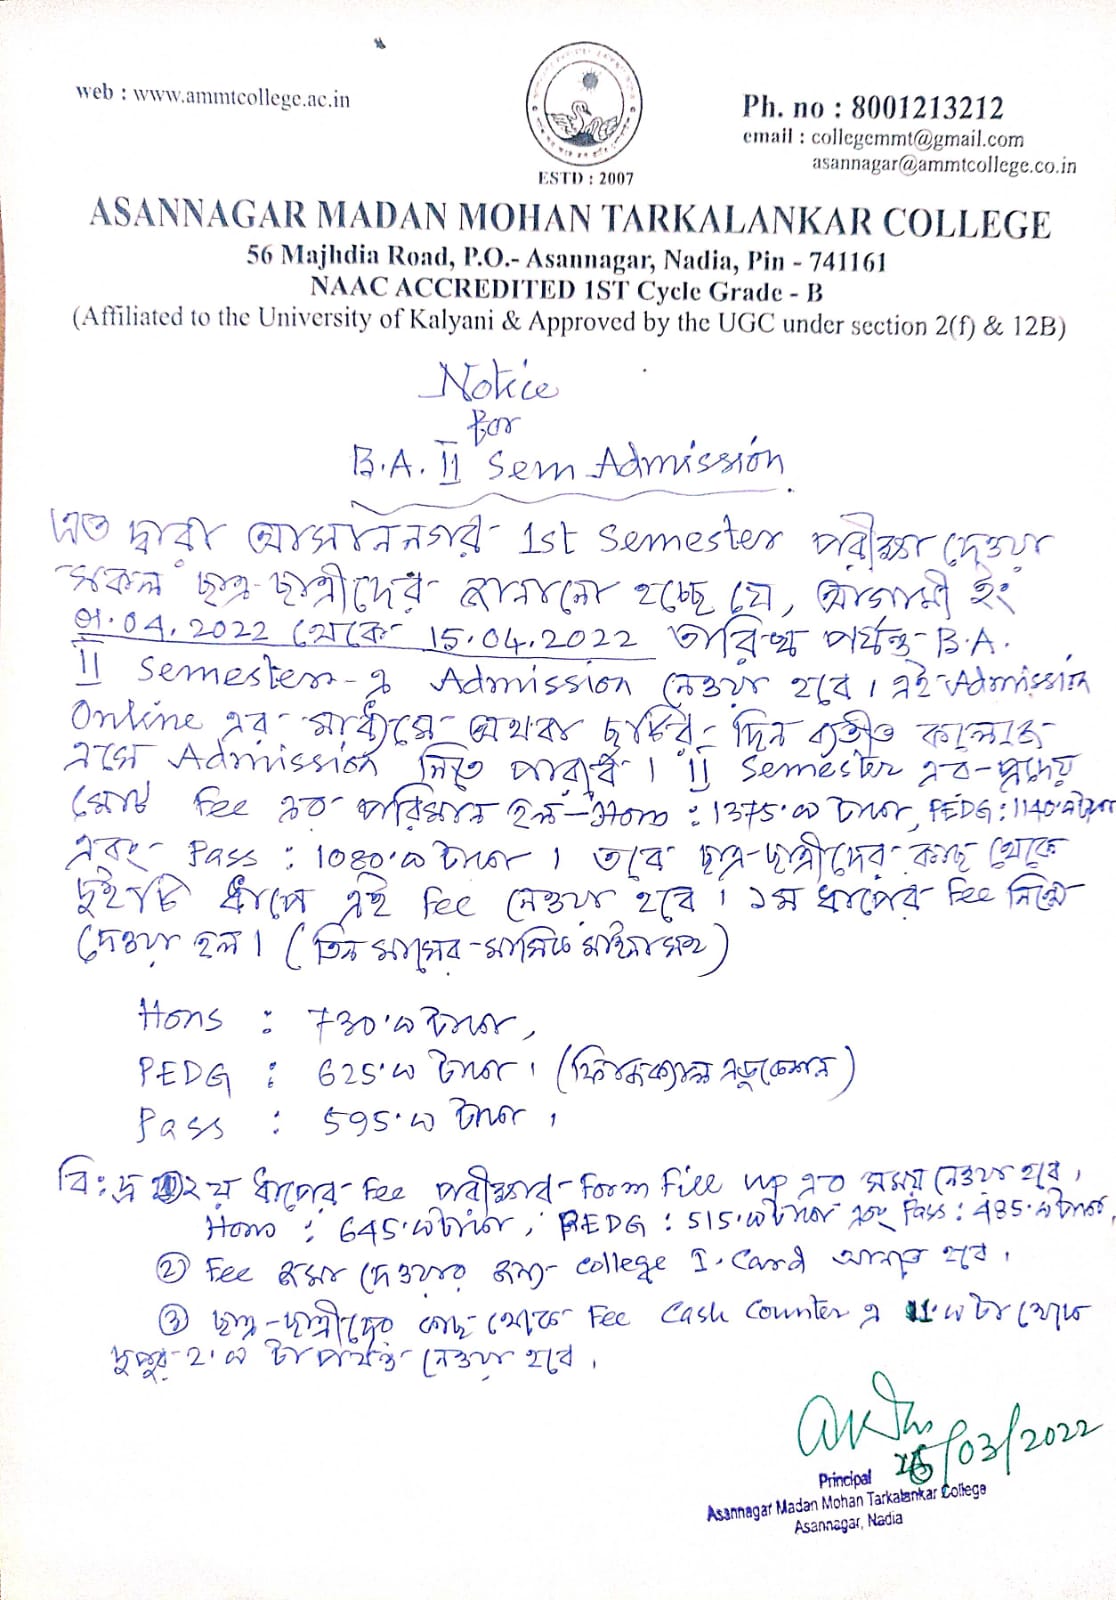 web : www.ammtcollege.ac.in
Ph. no : 8001213212
email : collegemmt@gmail.com
asannagar@ammtcollege.co.in
ESTD : 2007
ASANNAGAR MADAN MOHAN TARKALANKAR COLLEGE
56 Majhdia Road, P.O.- Asannagar, Nadia, Pin - 741161
NAAC ACCREDITED 1ST Cycle Grade - B
(Affiliated to the University of Kalyani & Approved by the UGC under section 2(f) & 12B)
Notice
for
B.A. II Sem Admission
এত দ্বারা আসাননগর 1st Semester পরীক্ষা দেওয়া
সকল ছাত্র-ছাত্রীদের জানানো হচ্ছে যে, আগামী ইং
01.04.2022 থেকে 15.04.2022 তারিখ পর্যন্ত B.A.
II Semester-এ Admission নেওয়া হবে। এই Admission
Online এর মাধ্যমে অথবা ছুটির দিন ব্যতীত কলেজে
এসে Admission নিতে পারবে। II Semester এর প্রদেয়
মোট Fee এর পরিমান হল-Hons : 1375.00 টাকা, PEDG : 1140.00 টাকা
এবং Pass : 1080.00 টাকা। তবে ছাত্র-ছাত্রীদের কাছ থেকে
দুইটি ধাপে এই Fee নেওয়া হবে। ১ম ধাপের Fee নিম্নে
দেওয়া হল। (তিন মাসের মাসিক মাইনা সহ)
Hons : 730.00 টাকা,
PEDG : 625.00 টাকা। (ফিজিক্যাল এডুকেশন)
Pass : 595.00 টাকা।
বি:দ্র ① ২য় ধাপের Fee পরীক্ষার Form Fill up এর সময় নেওয়া হবে।
Hons : 645.00 টাকা, PEDG : 515.00 টাকা এবং Pass : 485.00 টাকা,
② Fee জমা দেওয়ার জন্য College I. Card আনতে হবে।
③ ছাত্র-ছাত্রীদের কাছ থেকে Fee Cash Counter এ 11.00 টা থেকে
দুপুর 2.00 টা পর্যন্ত নেওয়া হবে।
/03/2022
Principal
Asannagar Madan Mohan Tarkalankar College
Asannagar, Nadia